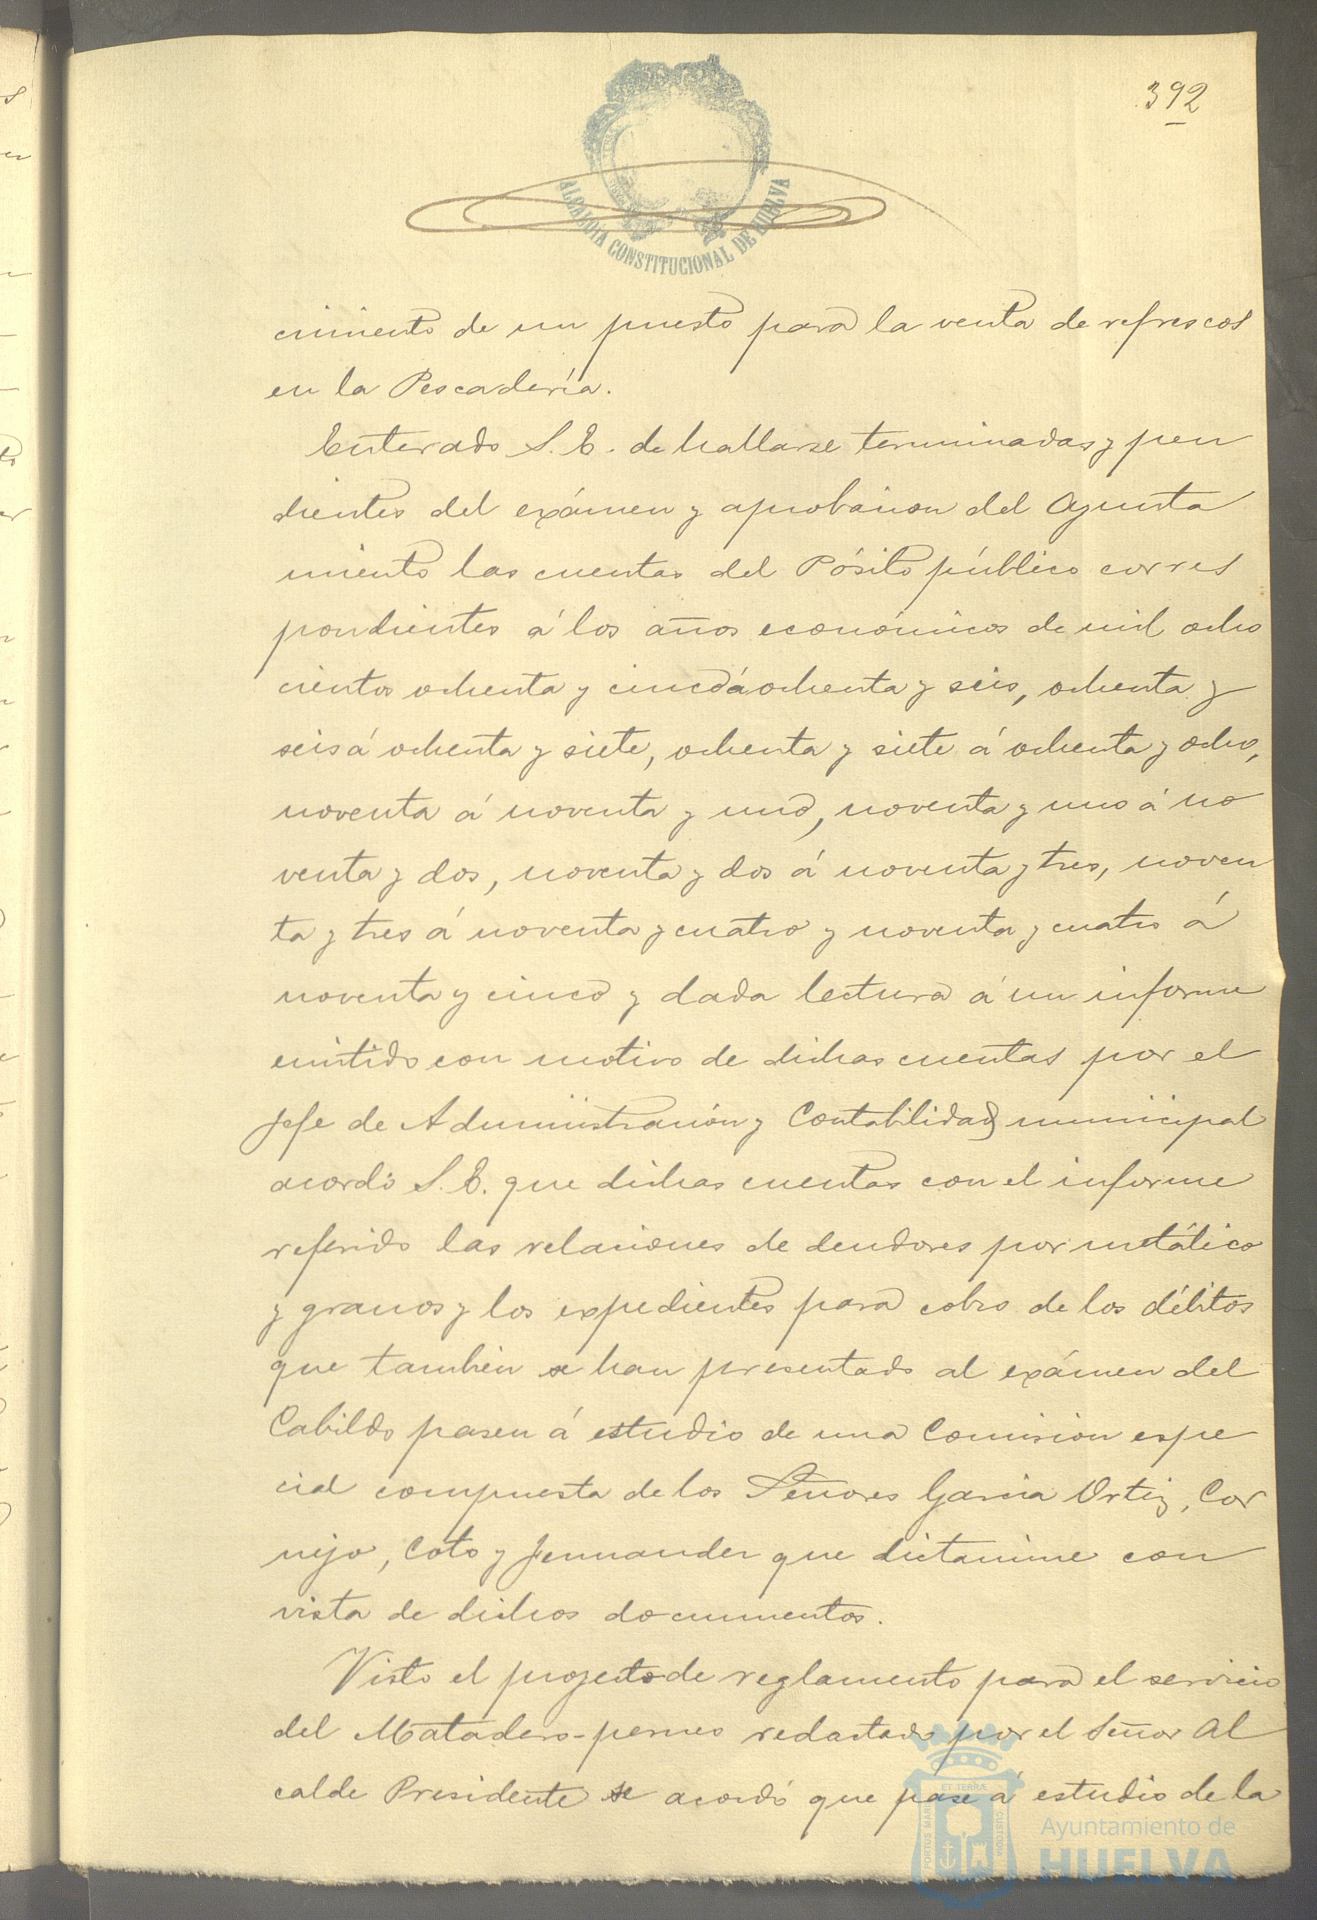 392
ALCALDIA CONSTITUCIONAL DE HUELVA
cimiento de un puesto para la venta de refrescos
en la Pescadería.
Enterado S. E. de hallarse terminadas y pen
dientes del exámen y aprobacion del Ayunta
miento las cuentas del Pósito público corres
pondientes á los años económicos de mil ocho
cientos ochenta y cinco á ochenta y seis, ochenta y
seis á ochenta y siete, ochenta y siete á ochenta y ocho,
noventa á noventa y uno, noventa y uno á no
venta y dos, noventa y dos á noventa y tres, noven
ta y tres á noventa y cuatro y noventa y cuatro á
noventa y cinco y dada lectura á un informe
emitido con motivo de dichas cuentas por el
Jefe de Administración y Contabilidad municipal
acordó S. E. que dichas cuentas con el informe
referido las relaciones de deudores por metálico
y granos y los expedientes para cobro de los débitos
que tambien se han presentado al exámen del
Cabildo pasen á estudio de una Comision espe
cial compuesta de los Señores Garcia Ortiz, Cor
nejo, Coto y que dictamine con
vista de dichos documentos.
Visto el proyecto de reglamento para el servicio
del Matadero- redactado por el Señor Al
calde Presidente se acordó que pase á estudio de la
PORTUS MARIS ET TERRÆ CUSTODIA
Ayuntamiento de
HUELVA